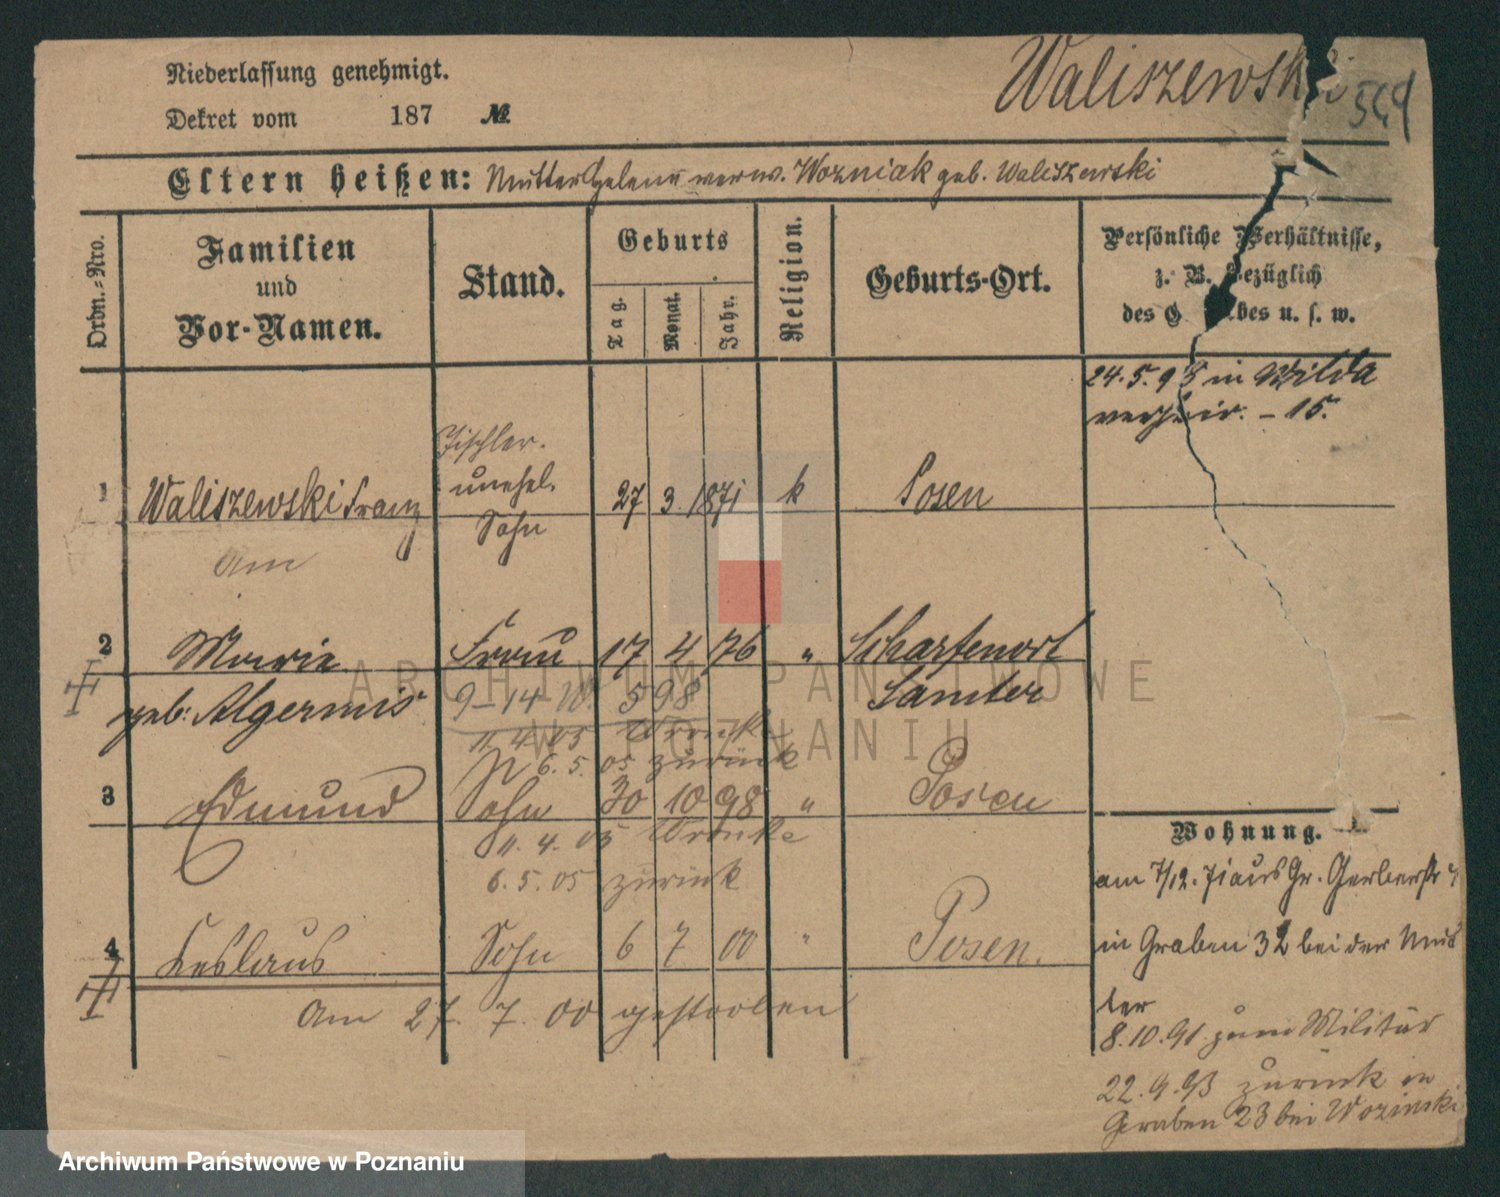 Niederlassung genehmigt.
Waliszewski
Dekret vom 187 №
Eltern heißen: Mutter Helene verw. Wozniak geb. Waliszewski
Ordn.-Nro.
Familien
und
Vor-Namen.
Stand.
Geburts
Tag.
Monat.
Jahr.
Religion.
Geburts-Ort.
Persönliche Verhältnisse,
z. B. bezüglich
des u. s. w.
24. 5. 98 in Wilda
verheir. - 15.
1 Waliszewski Franz
Tischler.
unehel.
Sohn
27 3. 1871 k Posen
am
2 Marie Frau 17 4 76 " Scharfenort
geb: Algermis 9-14 5 98 Samter
11. 4. 05 Wronke
6. 5. 05 zurück
3 Edmund Sohn 30 10 98 " Posen
11. 4. 05 Wronke
6. 5. 05 zurück
4 Leslaus Sohn 6 7 00 " Posen.
Am 27. 7. 00 gestorben
Wohnung.
am 7/12. 71 aus Gr. Gerberstr
in Graben 32 bei der Mut
ter
8. 10. 91 zum Militär
22. 9. 93 zurück in
Graben 23 bei
ARCHIWUM PAŃSTWOWE
W POZNANIU
Archiwum Państwowe w Poznaniu